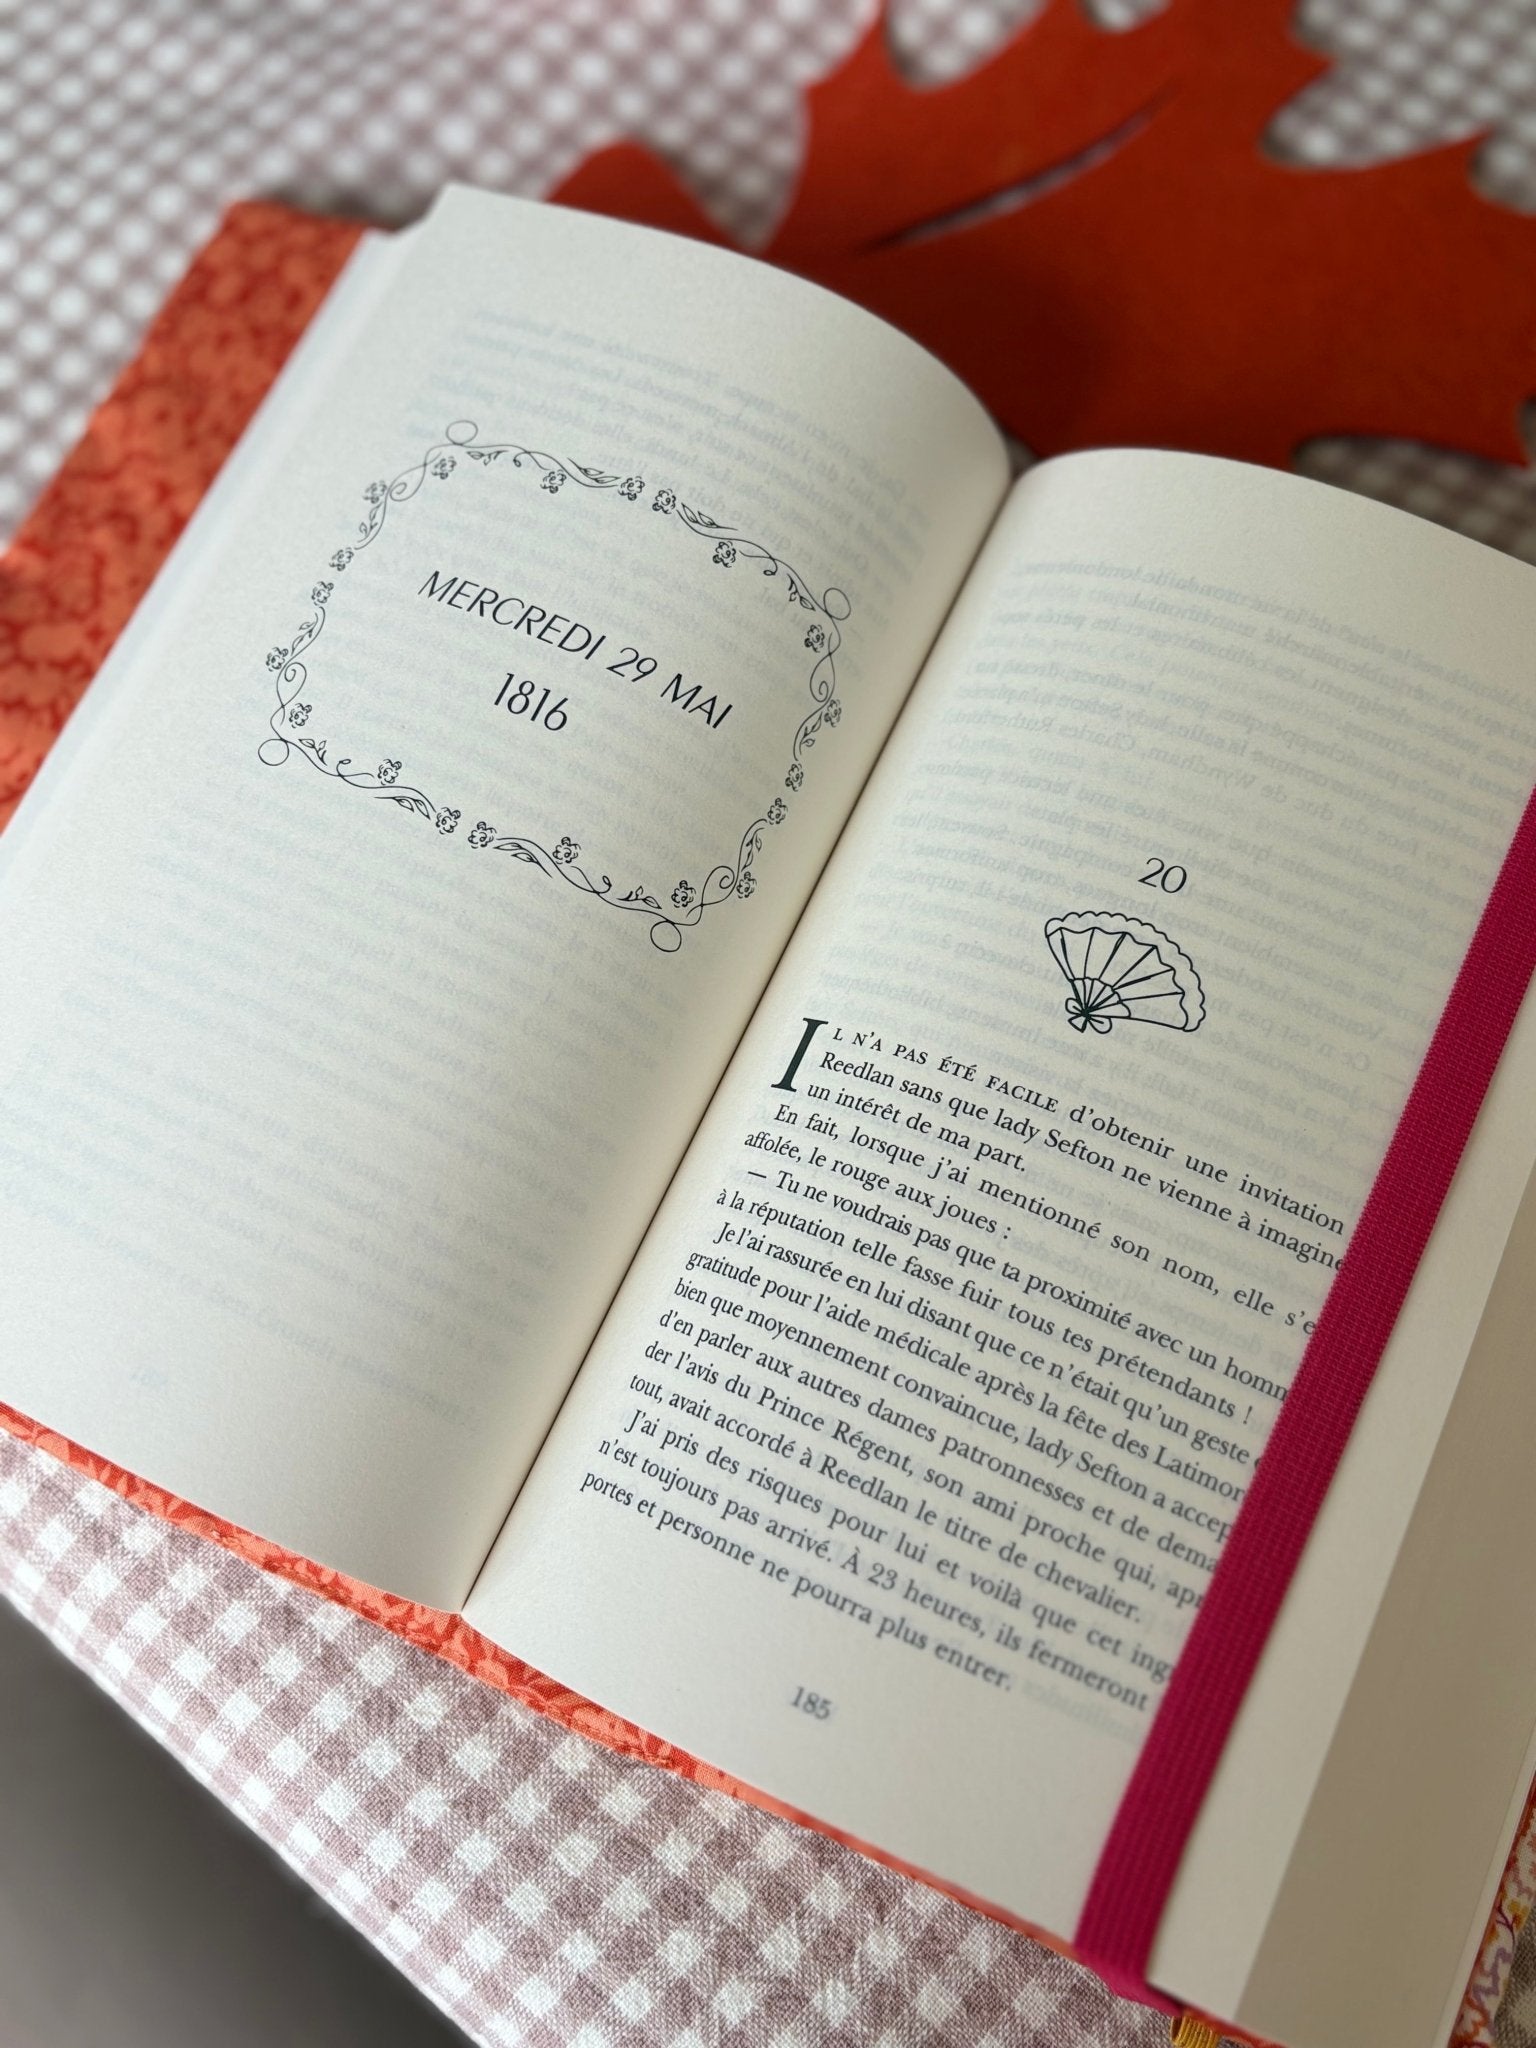 MERCREDI 29 MAI
1816
20
IL N'A PAS ÉTÉ FACILE d'obtenir une invitation
Reedlan sans que lady Sefton ne vienne à imagine
un intérêt de ma part.
En fait, lorsque j'ai mentionné son nom, elle s'e
affolée, le rouge aux joues :
— Tu ne voudrais pas que ta proximité avec un homm
à la réputation telle fasse fuir tous tes prétendants !
Je l'ai rassurée en lui disant que ce n'était qu'un geste
gratitude pour l'aide médicale après la fête des Latimor
bien que moyennement convaincue, lady Sefton a accep
d'en parler aux autres dames patronnesses et de dema
der l'avis du Prince Régent, son ami proche qui, apr
tout, avait accordé à Reedlan le titre de chevalier.
J'ai pris des risques pour lui et voilà que cet ing
n'est toujours pas arrivé. À 23 heures, ils fermeront
portes et personne ne pourra plus entrer.
185